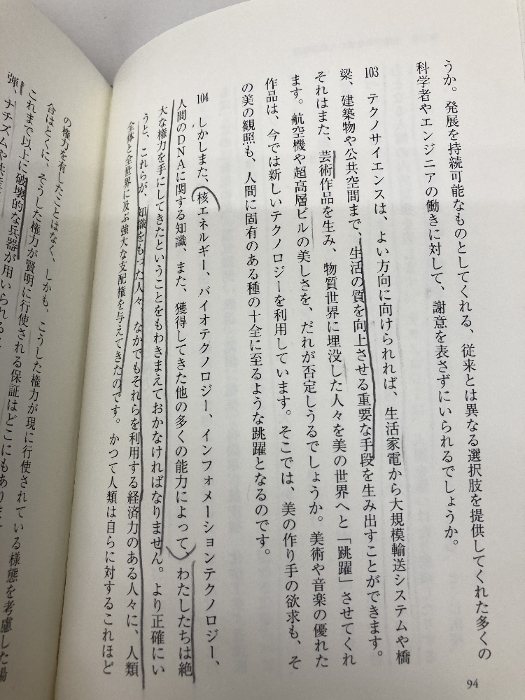 うか。発展を持続可能なものとしてくれる、従来とは異なる選択肢を提供してくれた多くの
科学者やエンジニアの働きに対して、謝意を表さずにいられるでしょうか。
103 テクノサイエンスは、よい方向に向けられれば、生活家電から大規模輸送システムや橋
梁、建築物や公共空間まで、生活の質を向上させる重要な手段を生み出すことができます。
それはまた、芸術作品を生み、物質世界に埋没した人々を美の世界へと「跳躍」させてくれ
ます。航空機や超高層ビルの美しさを、だれが否定しうるでしょうか。美術や音楽の優れた
作品は、今では新しいテクノロジーを利用しています。そこでは、美の作り手の欲求も、そ
の美の観照も、人間に固有のある種の十全に至るような跳躍となるのです。
104 しかしまた、核エネルギー、バイオテクノロジー、インフォメーションテクノロジー、
人間のDNAに関する知識、また、獲得してきた他の多くの能力によって、わたしたちは絶
大な権力を手にしてきたということをもわきまえておかなければなりません。より正確にい
うと、これらが、知識をもった人々、なかでもそれらを利用する経済力のある人々に、人類
全体と全世界に及ぶ強大な支配権を与えてきたのです。かつて人類は自らに対するこれほど
の権力を有したことはなく、しかも、こうした権力が現に行使されている様態を考慮した場
合はとくに、そうした権力が賢明に行使される保証はどこにもありま
これまで以上に破壊的な兵器が用いられる
弾、ナチズムや共産
94